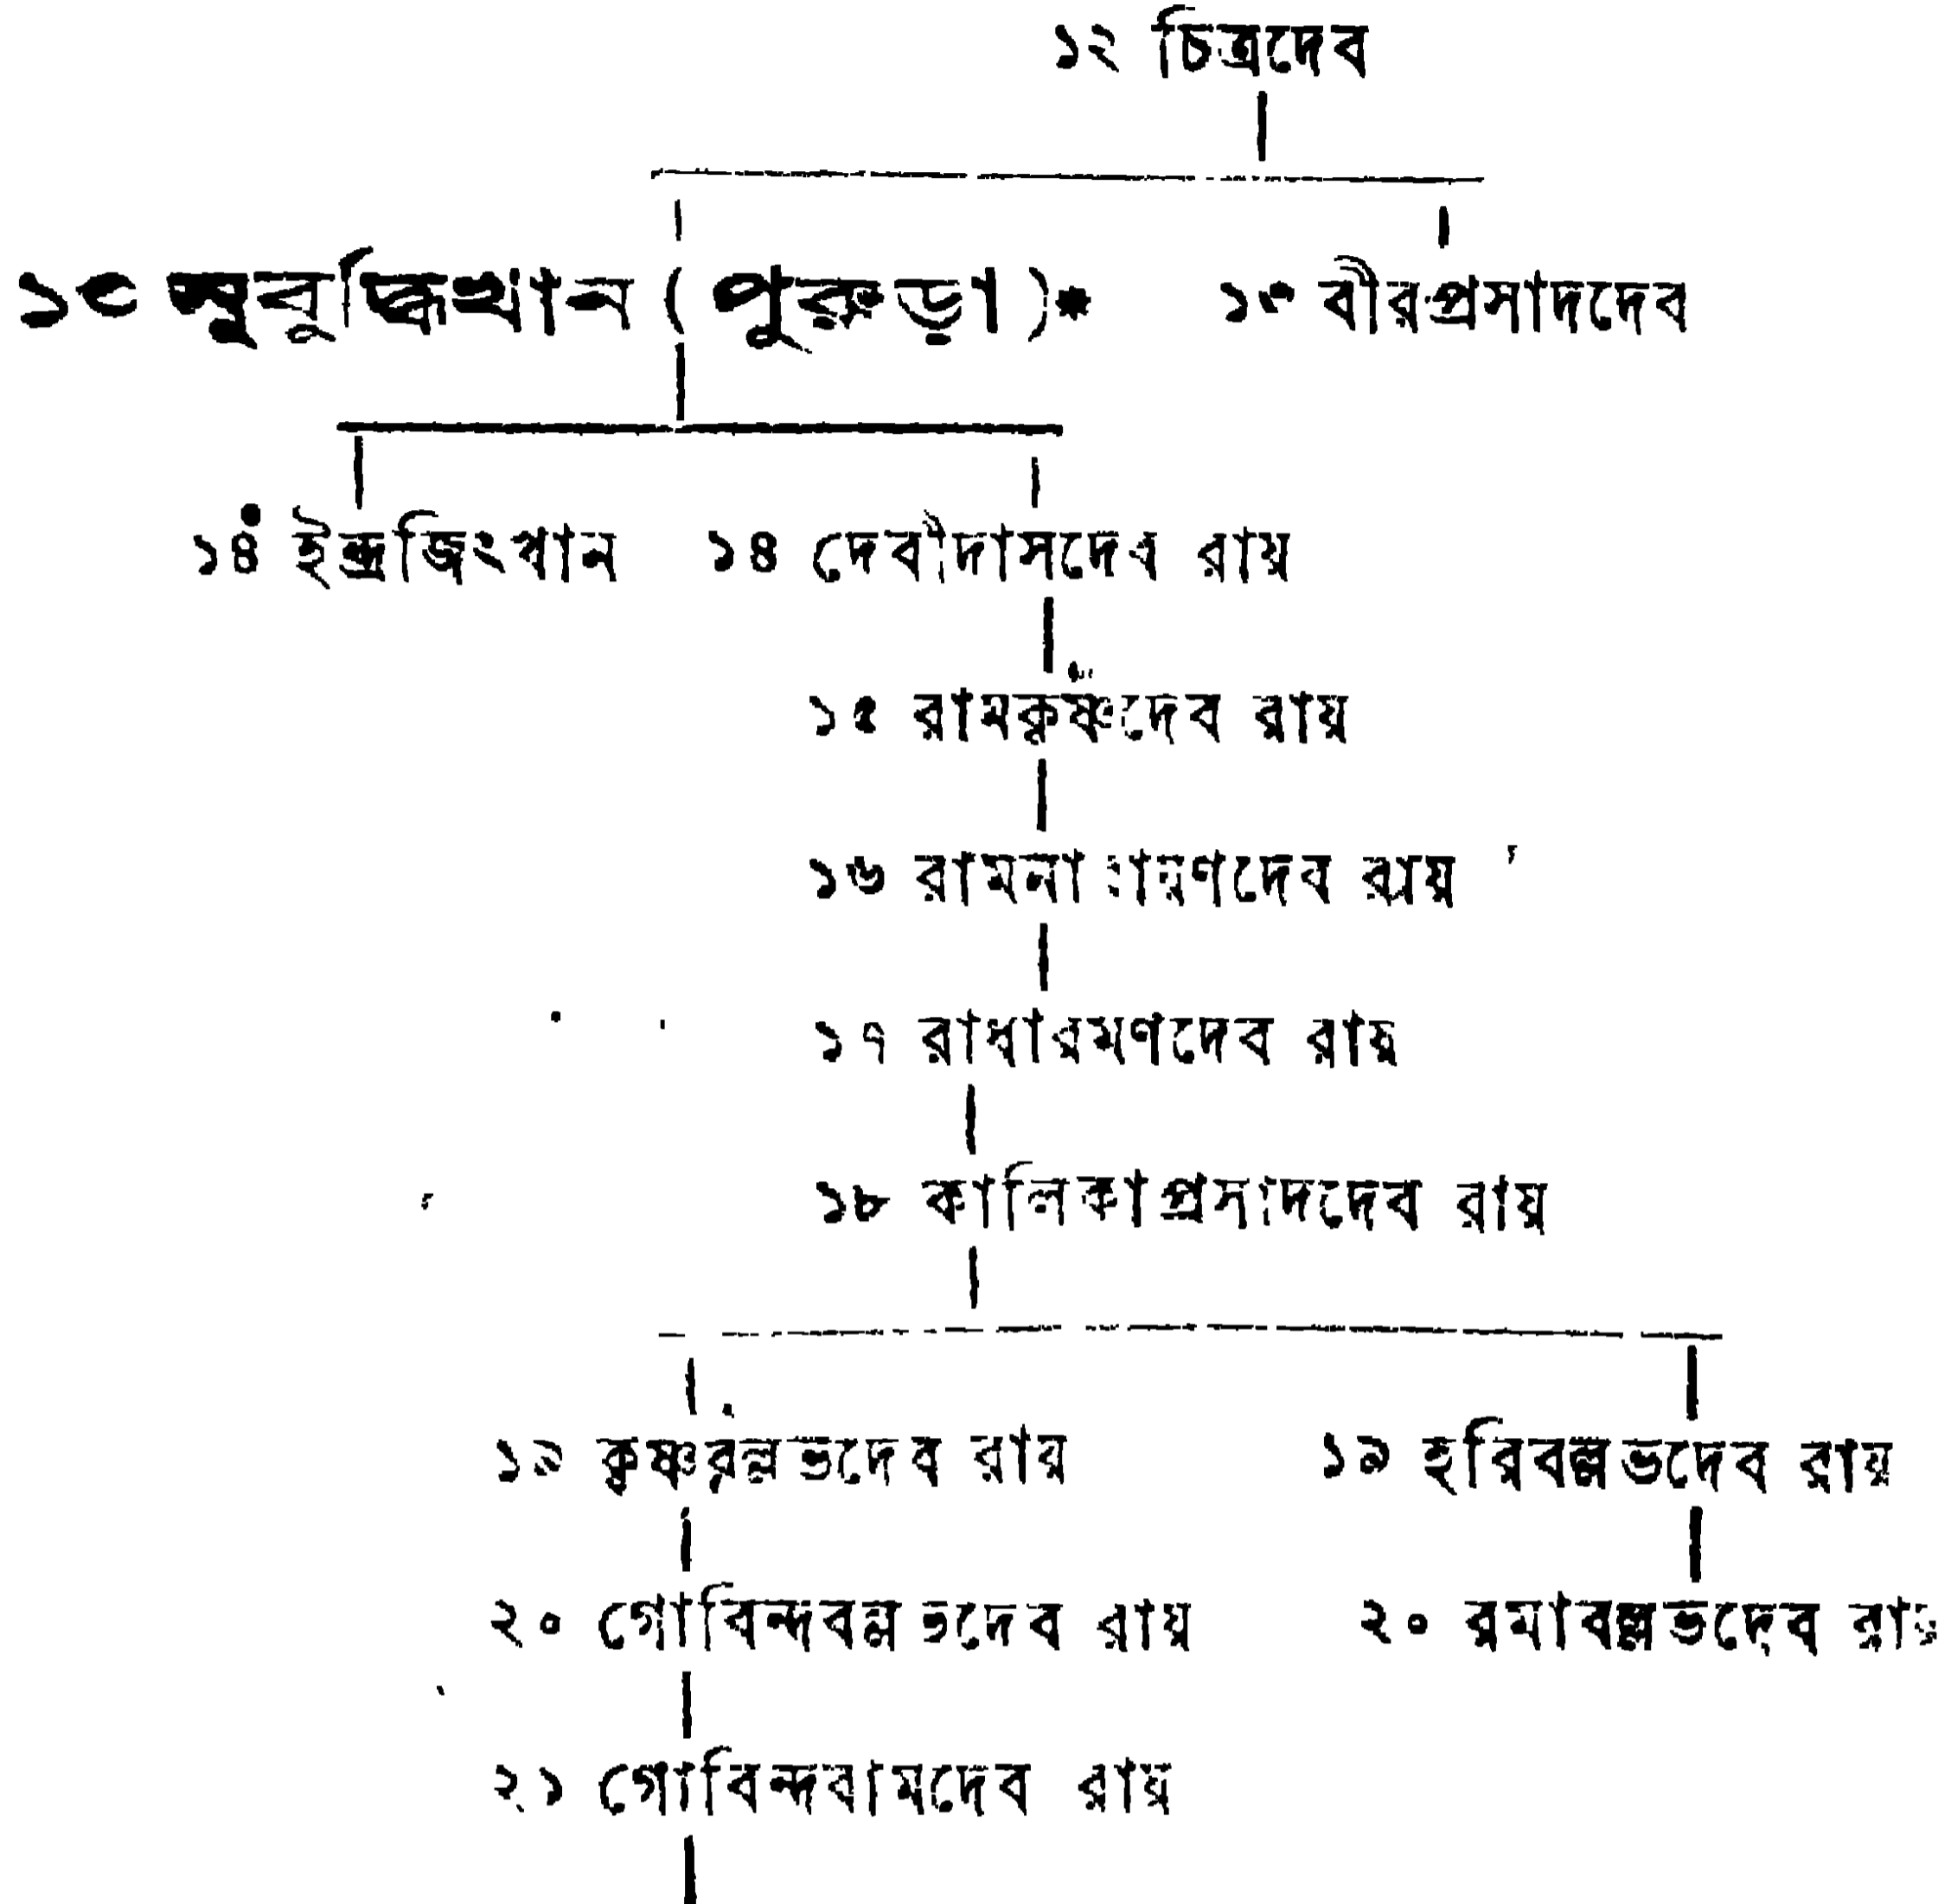 ১২ চিত্রদেব
১৩ সুবুদ্ধিখান (পুরুড়া)* ১৩ বীরপ্রসাদদেব
১৪ ইন্দ্রজিৎখান ১৪ দেবীদাসদেব রায়
১৫ রামকৃষ্ণদেব রায়
১৬ রামনারায়ণদেব রায়
১৭ রাধারমণদেব রায়
১৮ কালিকাপ্রসাদদেব রায়
১৯ কৃষ্ণবল্লভদেব রায় ১৯ হরিবল্লভদেব রায়
২০ গোবিন্দবল্লভদেব রায় ২০ রমাবল্লভদেব রায়
২১ গোবিন্দরামদেব রায়